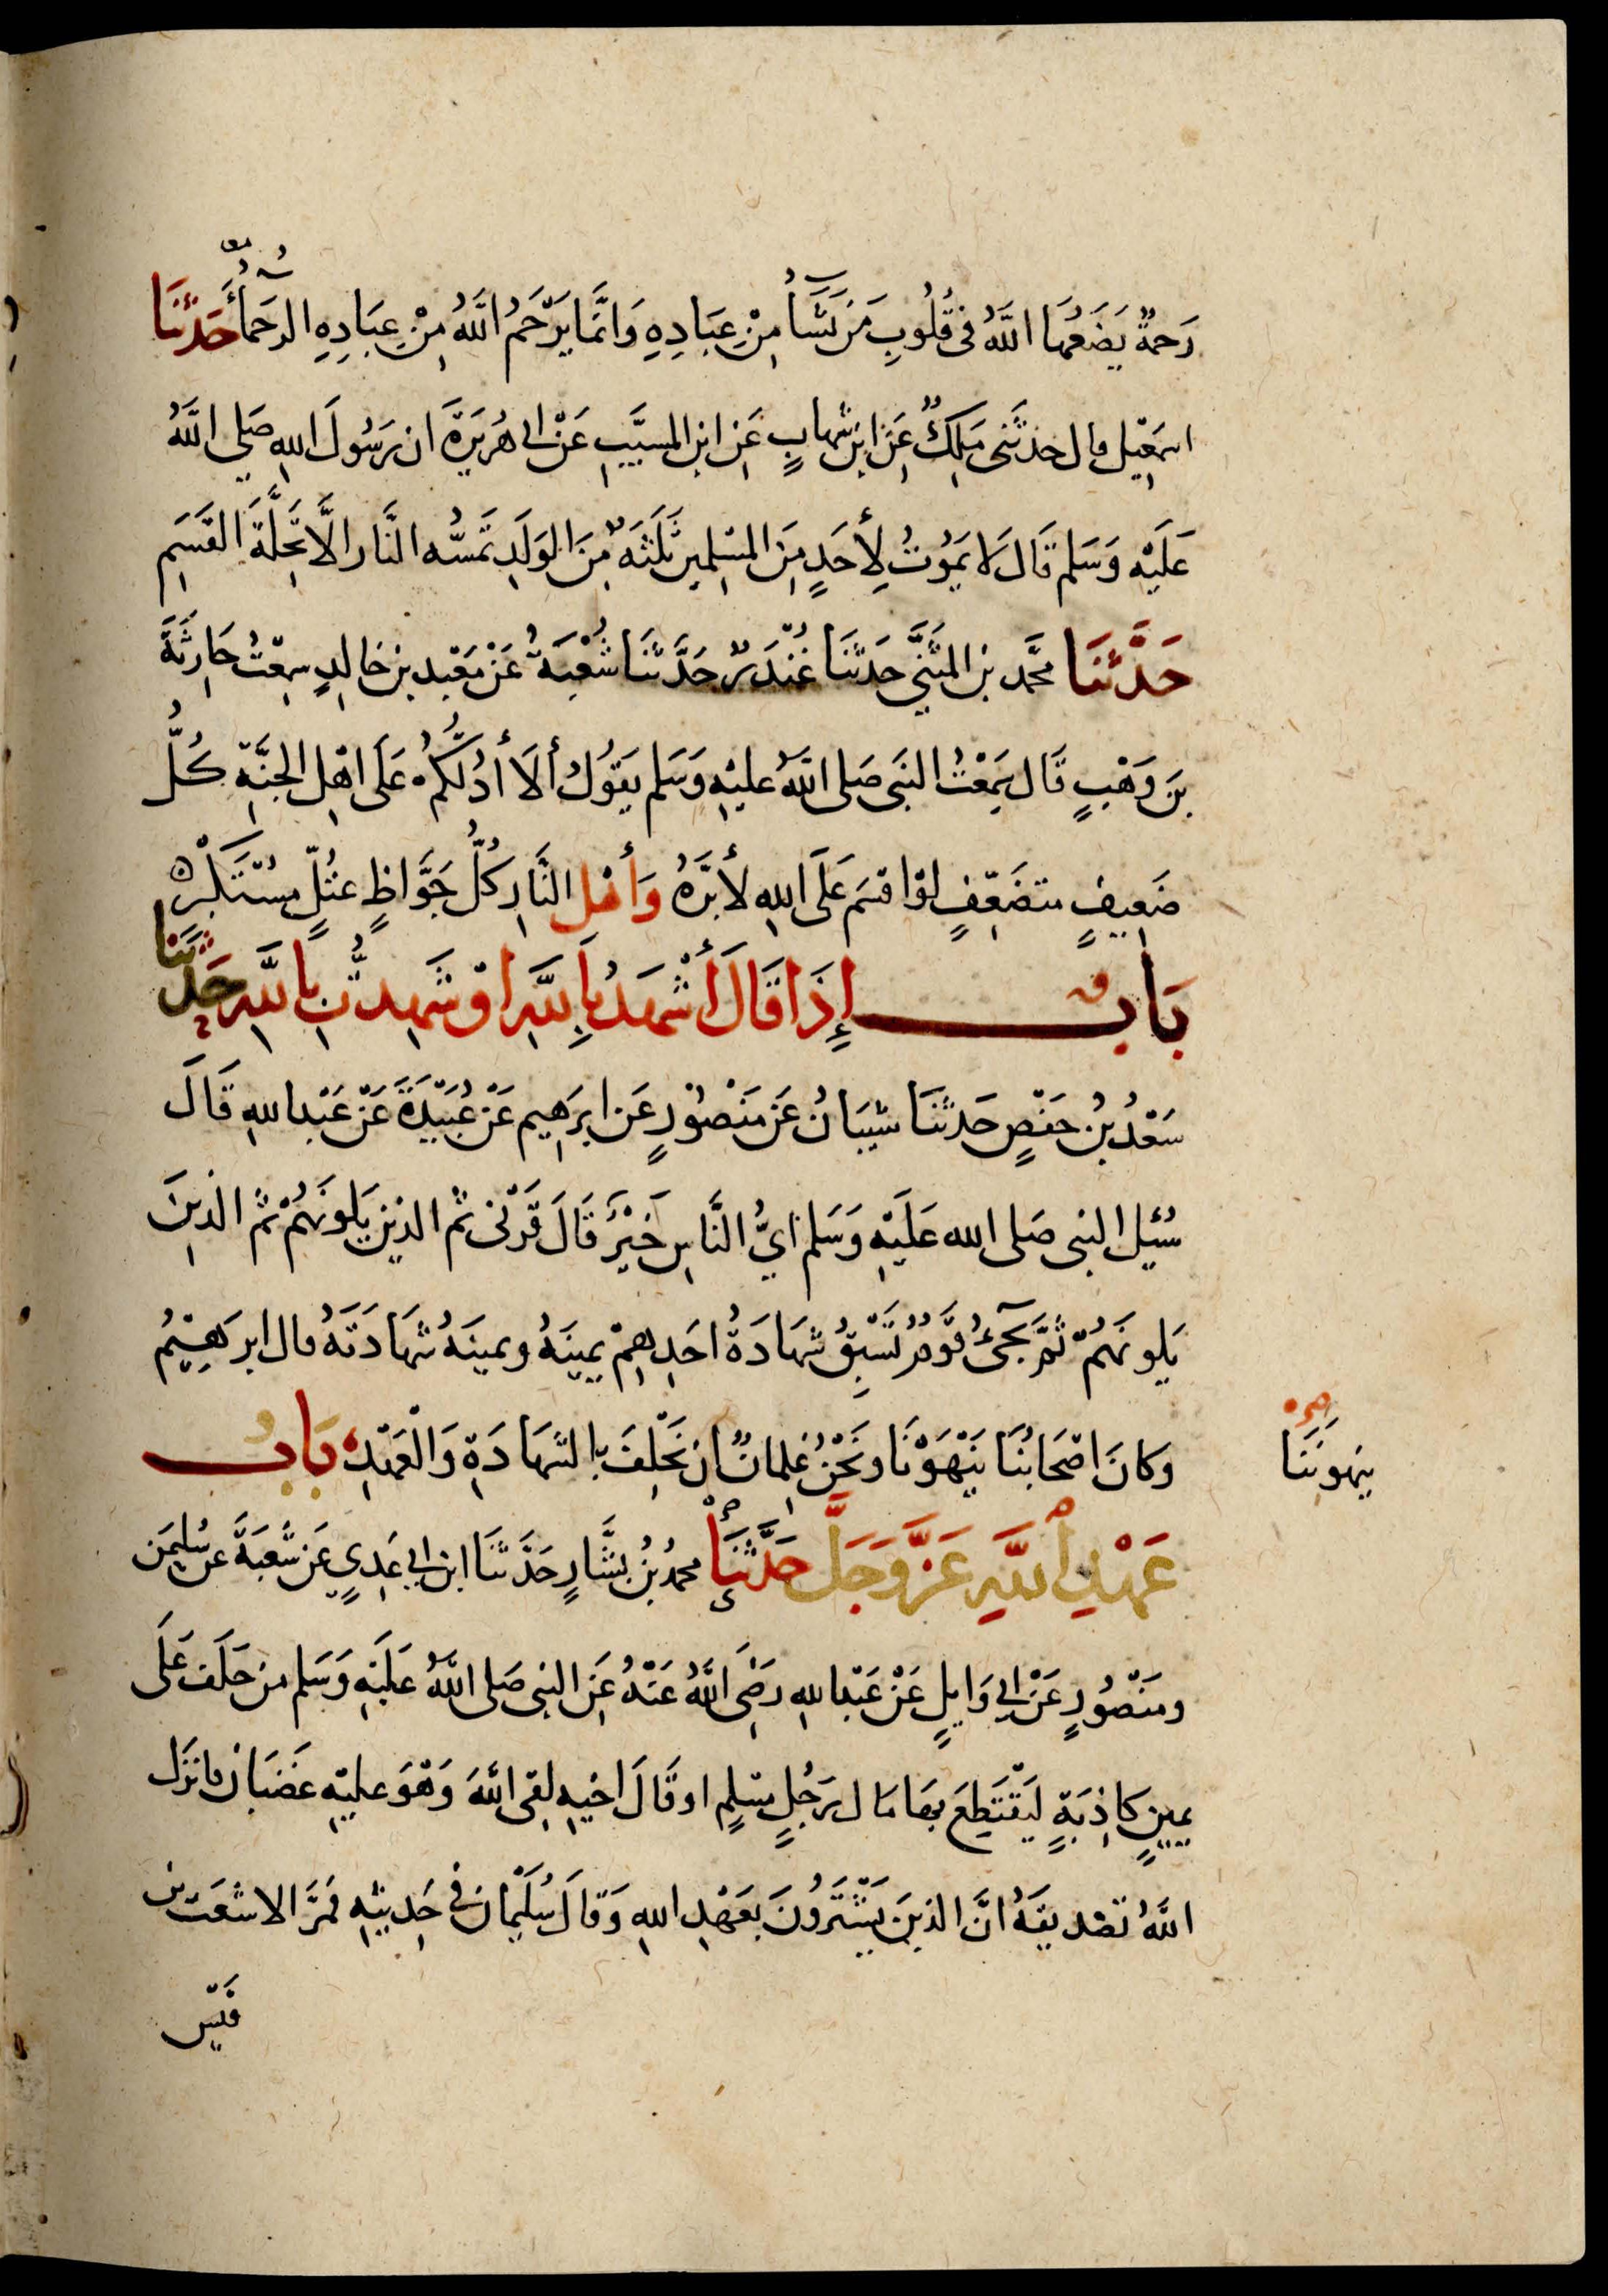 رَحمَةٌ يَضَعُهَا اللَّهُ فى قُلُوبِ مَن يَشَأُ مِنْ عِبَادِهِ وَانَّمَا يَرْحَمُ اللَّهُ مِنْ عِبَادِهِ الرحَمَأُ حَدثنَا
اسمَعِيل قال حدثَنى مَلِكٌ عَنِ ابنِ شهابٍ عَنِ ابنِ المسيَّبِ عَنْ ابى هُرَيرَةَ ان رَسُولَ اللهِ صَلى اللَّهُ
عَلَيْهِ وَسَلم قَالَ لَا يَمُوتُ لِأَحَدٍ مِنَ المسْلِمِين ثَلَثَهٌ مِنَ الوَلَدِ تَمسُّه النَّار الَّا تَحِلَّةَ القَسَمِ
حَدَّثنَا محمَّد بن المثَنَّى حَدثنَا غُنْدَرٌ حَدَّثنَا شُعْبَةُ عَنْ مَعْبد بن خالِدٍ سمِعْتُ حَارِثَةَ
بنَ وَهْبٍ قَال سَمِعْتُ النبَى صَلى اللَّهُ عليْهِ وَسَلم يقَوُلُ أَلَا أدُلُّكُمْ عَلَى اهْلِ الجنَّةِ كُلُّ
ضَعِيفٍ متضَعِّفٍ لوْ اقسَم عَلَى اللهِ لأَبرَّهُ وَأَهْل النَّارِ كلُّ جَوَّاظٍ عتُلٍّ مسْتَكْبرٍ
بَابٌ إِذَا قَالَ أَشْهَدُ بِاللَّهِ اوْ شَهِدتُّ بِاللَّهِ حَدَّثنَا
سَعْدُ بنُ حَفصٍ حَدثنَا شيبَانُ عَن مَنصُورٍ عَن ابرَهِيم عَنْ عُبَيْدَةَ عَنْ عَبْد اللهِ قَالَ
سُئِيل النبى صَلى الله عَلَيْهِ وَسَلم ايُّ النَّاسِ خَيْرٌ قَالَ قَرْنى ثم الذين يَلونَهُمْ ثمَّ الذِينَ
يَلونَهُمْ ثُمَّ يَجئُ قَوْمٌ تَسْبِقُ شَهَادَةُ احَدِهِمْ يمِينَهُ ويمينُهُ شَهَادَتَهُ قال ابرَهِيْمُ
وَكانَ اصْحَابُنَا يَنْهَوْنَا وَنَحْنُ غِلمانٌ ان نَحْلِفَ بِالشَّهَادَةِ وَالْعَهْدِ بَابُ
يَنهَوننَا
عَهْدِ اللَّهِ عَزَّ وَجَلَّ حَدَّثنَا محمدُ بنُ بشَّارٍ حَدَّثنَا ابن ابى عَدِيٍ عَن شُعبَةَ عَن سُليمَن
ومَنْصُورٍ عَنْ ابى وَايلٍ عَنْ عَبْد اللهِ رَضِىَ اللَّهُ عَنْهُ عَنِ النبِى صَلى اللَّهُ عَلَيْهِ وَسَلم من حَلَف عَلَى
يميِنٍ كاذِبَةٍ لَيَقْتَطِعَ بهَا مَال رَجُلٍ مسْلِمٍ او قَالَ اخيْهِ لِقى اللَّهَ وَهْوَ عليْهِ غَضبَان فانزَل
اللَّهُ تصْديقَهُ انَّ الذينَ يَشْتَرُونَ بعَهْدِ اللهِ وَقالَ سُلَيْمانُ فى حَديثِهِ فمَرَّ الاشعَث بن
قَيْس